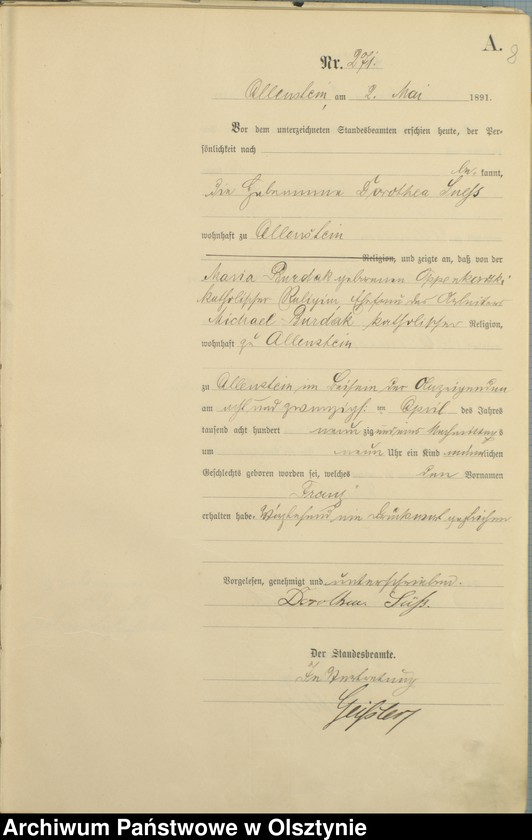 A.
8
Nr. 271.
Allenstein, am 2. Mai 1891.
Vor dem unterzeichneten Standesbeamten erschien heute, der Per-
sönlichkeit nach
be kannt,
die Hebeamme Dorothea Suess
wohnhaft zu Allenstein
Religion, und zeigte an, daß von der
Maria Burdak geborenen
katholischer Religion, Ehefrau des Arbeiters
Michael Burdak katholischer Religion,
wohnhaft zu Allenstein
zu Allenstein im Beisein der Anzeigenden
am acht und zwanzigst en April des Jahres
tausend acht hundert neun zig und eins Nachmittags
um neun Uhr ein Kind männlichen
Geschlechts geboren worden sei, welches den Vornamen
Franz
erhalten habe. Vorstehend ein Druckwort gestrichen
Vorgelesen, genehmigt und unterschrieben.
Dorothea Süß.
Der Standesbeamte.
In Vertretung
Geißler
Archiwum Państwowe w Olsztynie